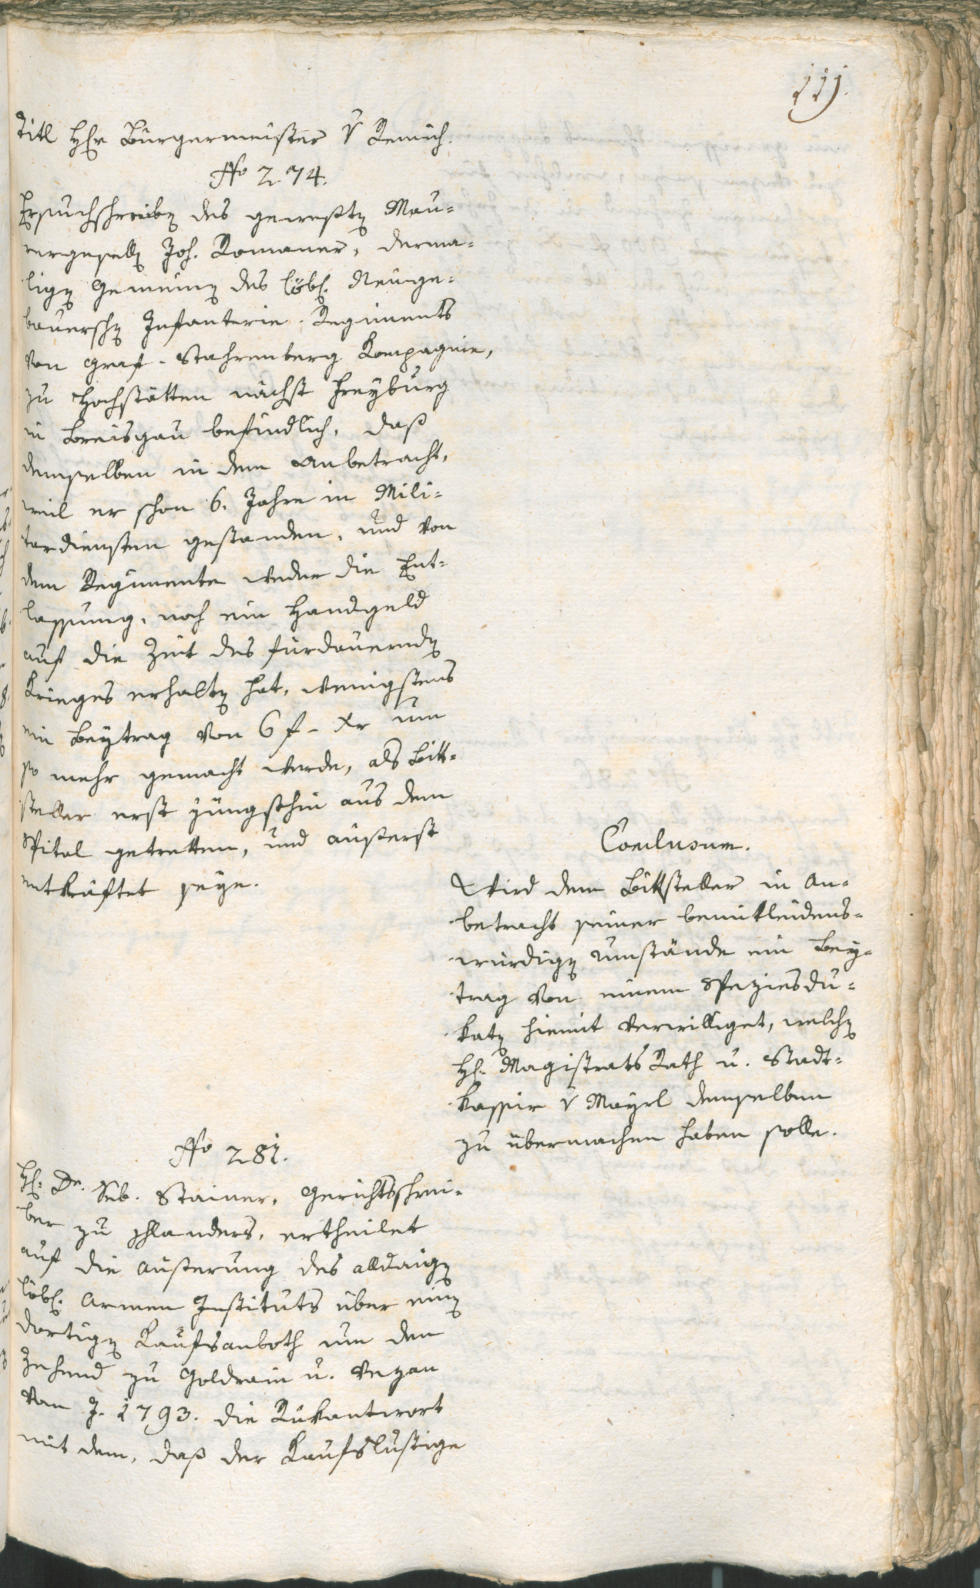 111.
Titl Hhr Bürgermeister v Remich.
No 274.
Ersuchschreiben des gewesten Mau-
rergesell Joh. Romaner, derma-
ligen Gemeinen des löbl. Neuge-
bauerschen Infanterie-Regiments
von Graf-Stahrenberg Kompagnie,
zu Hochstätten nächst Freyburg
in Breisgau befindlich, daß
demselben in dem Anbetracht,
weil er schon 6. Jahre in Mili-
tardiensten gestanden, und von
dem Regimente weder die Ent-
lassung, noch ein Handgeld
auf die Zeit des fürdauernden
Krieges erhalten hat, wenigstens
ein Beytrag von 6 f - Xr um
so mehr gemacht werde, als Bitt-
steller erst jüngsthin aus dem
Spital getretten, und äußerst
entkräftet seye.
Conclusum.
Wird dem Bittsteller in An-
betracht seiner bemitleidens-
würdigen Umstände ein Bey-
trag von einem Speziesdu-
katen hiemit verwilliget, welchen
Hl. Magistrats Rath u. Stadt-
kassir v Mayrl demselben
zu übermachen haben solle.
No 281.
Hl. Dr. Seb. Stainer, Gerichtsschrei-
ber zu Schlanders, ertheilet
auf die Äusserung des alldaigen
löbl. Armen Instituts über einen
dortigen Kaufsanboth um den
Zehend zu Goldrain u. Vezan
vom J. 1793. die Rükantwort
mit dem, daß der Kaufslustige